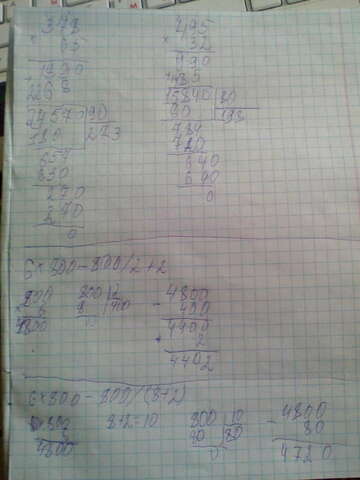 378
× 65
1890
2268
24570 90
180 273
657
630
270
270
0
495
× 32
990
1485
15840 80
80 198
784
720
640
640
0
6×800-800/2+2
800
× 6
4800
800 2
8 400
0
- 4800
400
4400
+ 2
4402
6×800-800/(8+2)
×800
6
4800
8+2=10
800 10
80 80
0
- 4800
80
4720